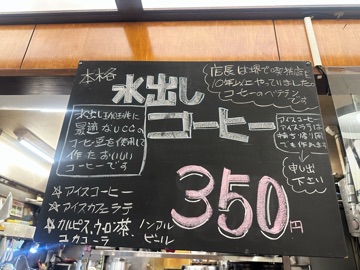 本格
水出し
コーヒー
店長は堺で喫茶店を
10年以上やっていました
コーヒーのベテラン
です
水出し
最適なUCCの
コーヒー豆を使用して
作ったおいしい
コーヒーです
アイスコーヒー
アイスカフェラテ
でも
申し出
下さい
☆アイスコーヒー
☆アイスカフェラテ
☆カルピス、ウーロン茶、
コカコーラ
ノンアル
ビール
350円